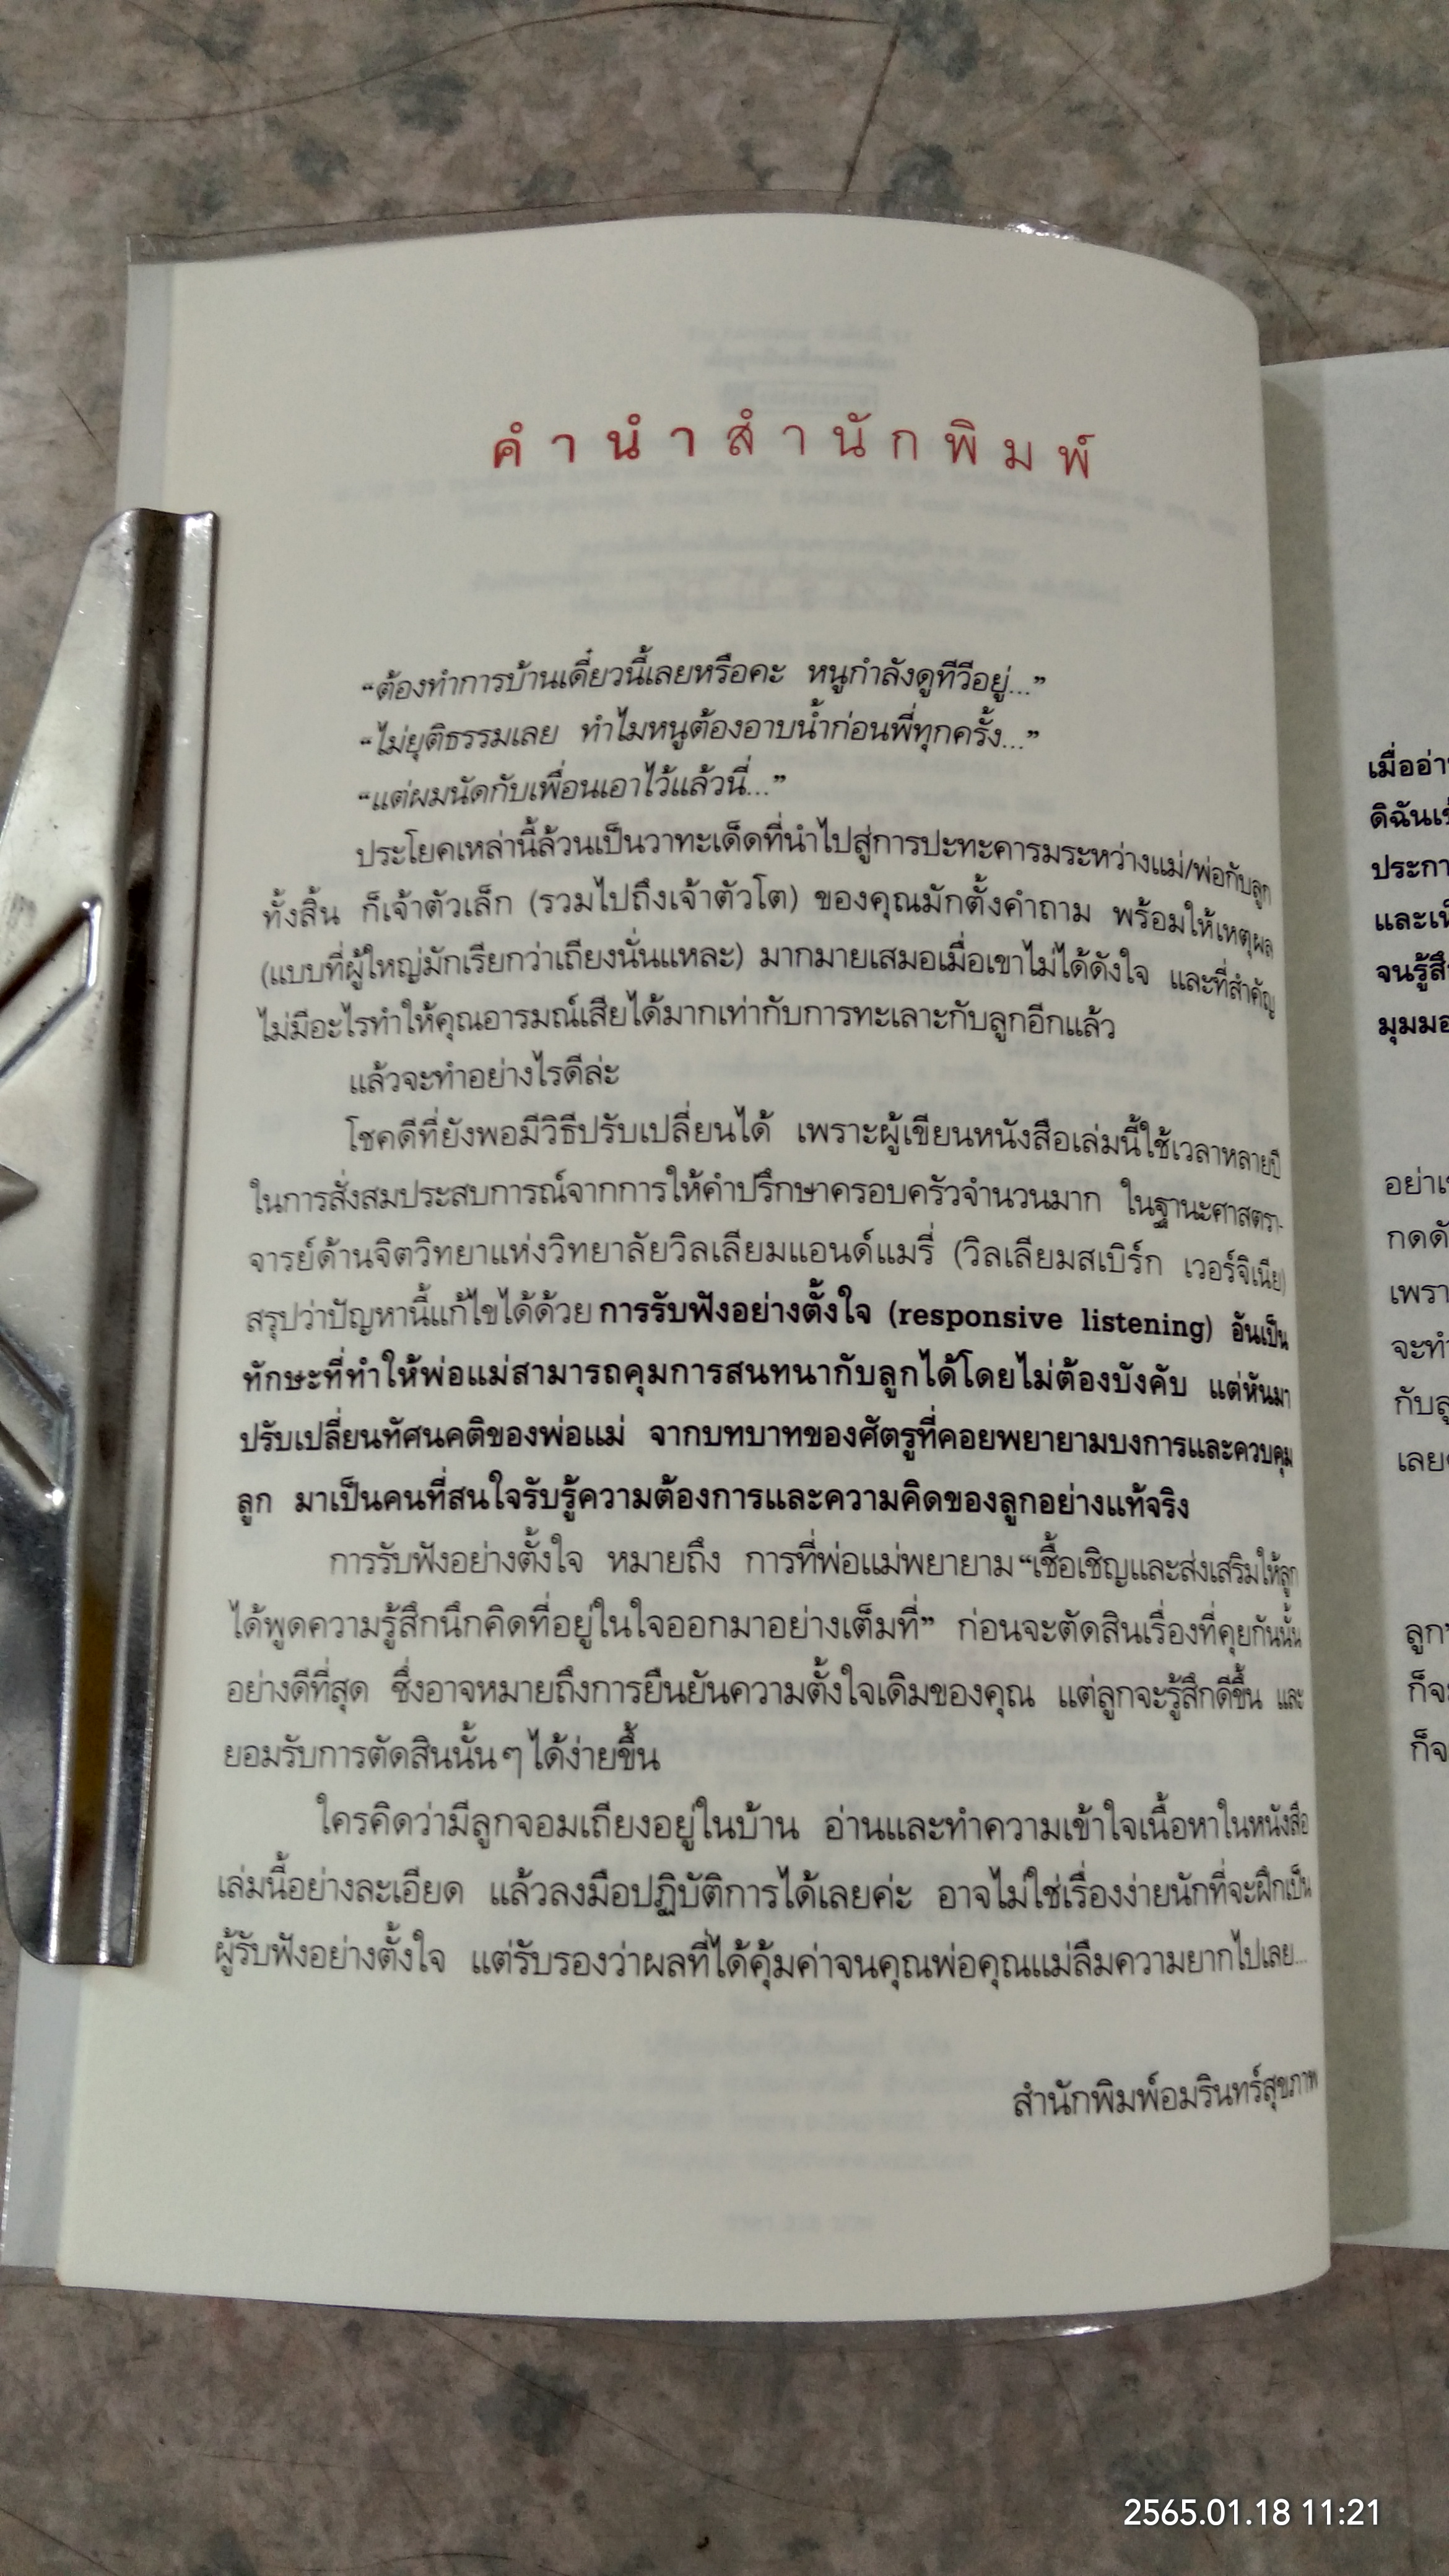 คำนำสำนักพิมพ์
“ต้องทำการบ้านเดี๋ยวนี้เลยหรือคะ หนูกำลังดูทีวีอยู่...”
“ไม่ยุติธรรมเลย ทำไมหนูต้องอาบน้ำก่อนพี่ทุกครั้ง...”
“แต่ผมนัดกับเพื่อนเอาไว้แล้วนี่...”
ประโยคเหล่านี้ล้วนเป็นวาทะเด็ดที่นำไปสู่การปะทะคารมระหว่างแม่/พ่อกับลูก
ทั้งสิ้น ก็เจ้าตัวเล็ก (รวมไปถึงเจ้าตัวโต) ของคุณมักตั้งคำถาม พร้อมให้เหตุผล
(แบบที่ผู้ใหญ่มักเรียกว่าเถียงนั่นแหละ) มากมายเสมอเมื่อเขาไม่ได้ดังใจ และที่สำคัญ
ไม่มีอะไรทำให้คุณอารมณ์เสียได้มากเท่ากับการทะเลาะกับลูกอีกแล้ว
แล้วจะทำอย่างไรดีล่ะ
โชคดีที่ยังพอมีวิธีปรับเปลี่ยนได้ เพราะผู้เขียนหนังสือเล่มนี้ใช้เวลาหลายปี
ในการสั่งสมประสบการณ์จากการให้คำปรึกษาครอบครัวจำนวนมาก ในฐานะศาสตรา-
จารย์ด้านจิตวิทยาแห่งวิทยาลัยวิลเลียมแอนด์แมรี่ (วิลเลียมสเบิร์ก เวอร์จิเนีย)
สรุปว่าปัญหานี้แก้ไขได้ด้วย การรับฟังอย่างตั้งใจ (responsive listening) อันเป็น
ทักษะที่ทำให้พ่อแม่สามารถคุมการสนทนากับลูกได้โดยไม่ต้องบังคับ แต่หันมา
ปรับเปลี่ยนทัศนคติของพ่อแม่ จากบทบาทของศัตรูที่คอยพยายามบงการและควบคุม
ลูก มาเป็นคนที่สนใจรับรู้ความต้องการและความคิดของลูกอย่างแท้จริง
การรับฟังอย่างตั้งใจ หมายถึง การที่พ่อแม่พยายาม “เชื้อเชิญและส่งเสริมให้ลูก
ได้พูดความรู้สึกนึกคิดที่อยู่ในใจออกมาอย่างเต็มที่” ก่อนจะตัดสินเรื่องที่คุยกันนั้น
อย่างดีที่สุด ซึ่งอาจหมายถึงการยืนยันความตั้งใจเดิมของคุณ แต่ลูกจะรู้สึกดีขึ้น และ
ยอมรับการตัดสินนั้น ๆ ได้ง่ายขึ้น
ใครคิดว่ามีลูกจอมเถียงอยู่ในบ้าน อ่านและทำความเข้าใจเนื้อหาในหนังสือ
เล่มนี้อย่างละเอียด แล้วลงมือปฏิบัติการได้เลยค่ะ อาจไม่ใช่เรื่องง่ายนักที่จะฝึกเป็น
ผู้รับฟังอย่างตั้งใจ แต่รับรองว่าผลที่ได้คุ้มค่าจนคุณพ่อคุณแม่ลืมความยากไปเลย...
สำนักพิมพ์อมรินทร์สุขภาพ
ดิฉัน
และ
อย่า
เพรา
กับ
เลย
ก็จ
ก็จ
2565.01.18 11:21